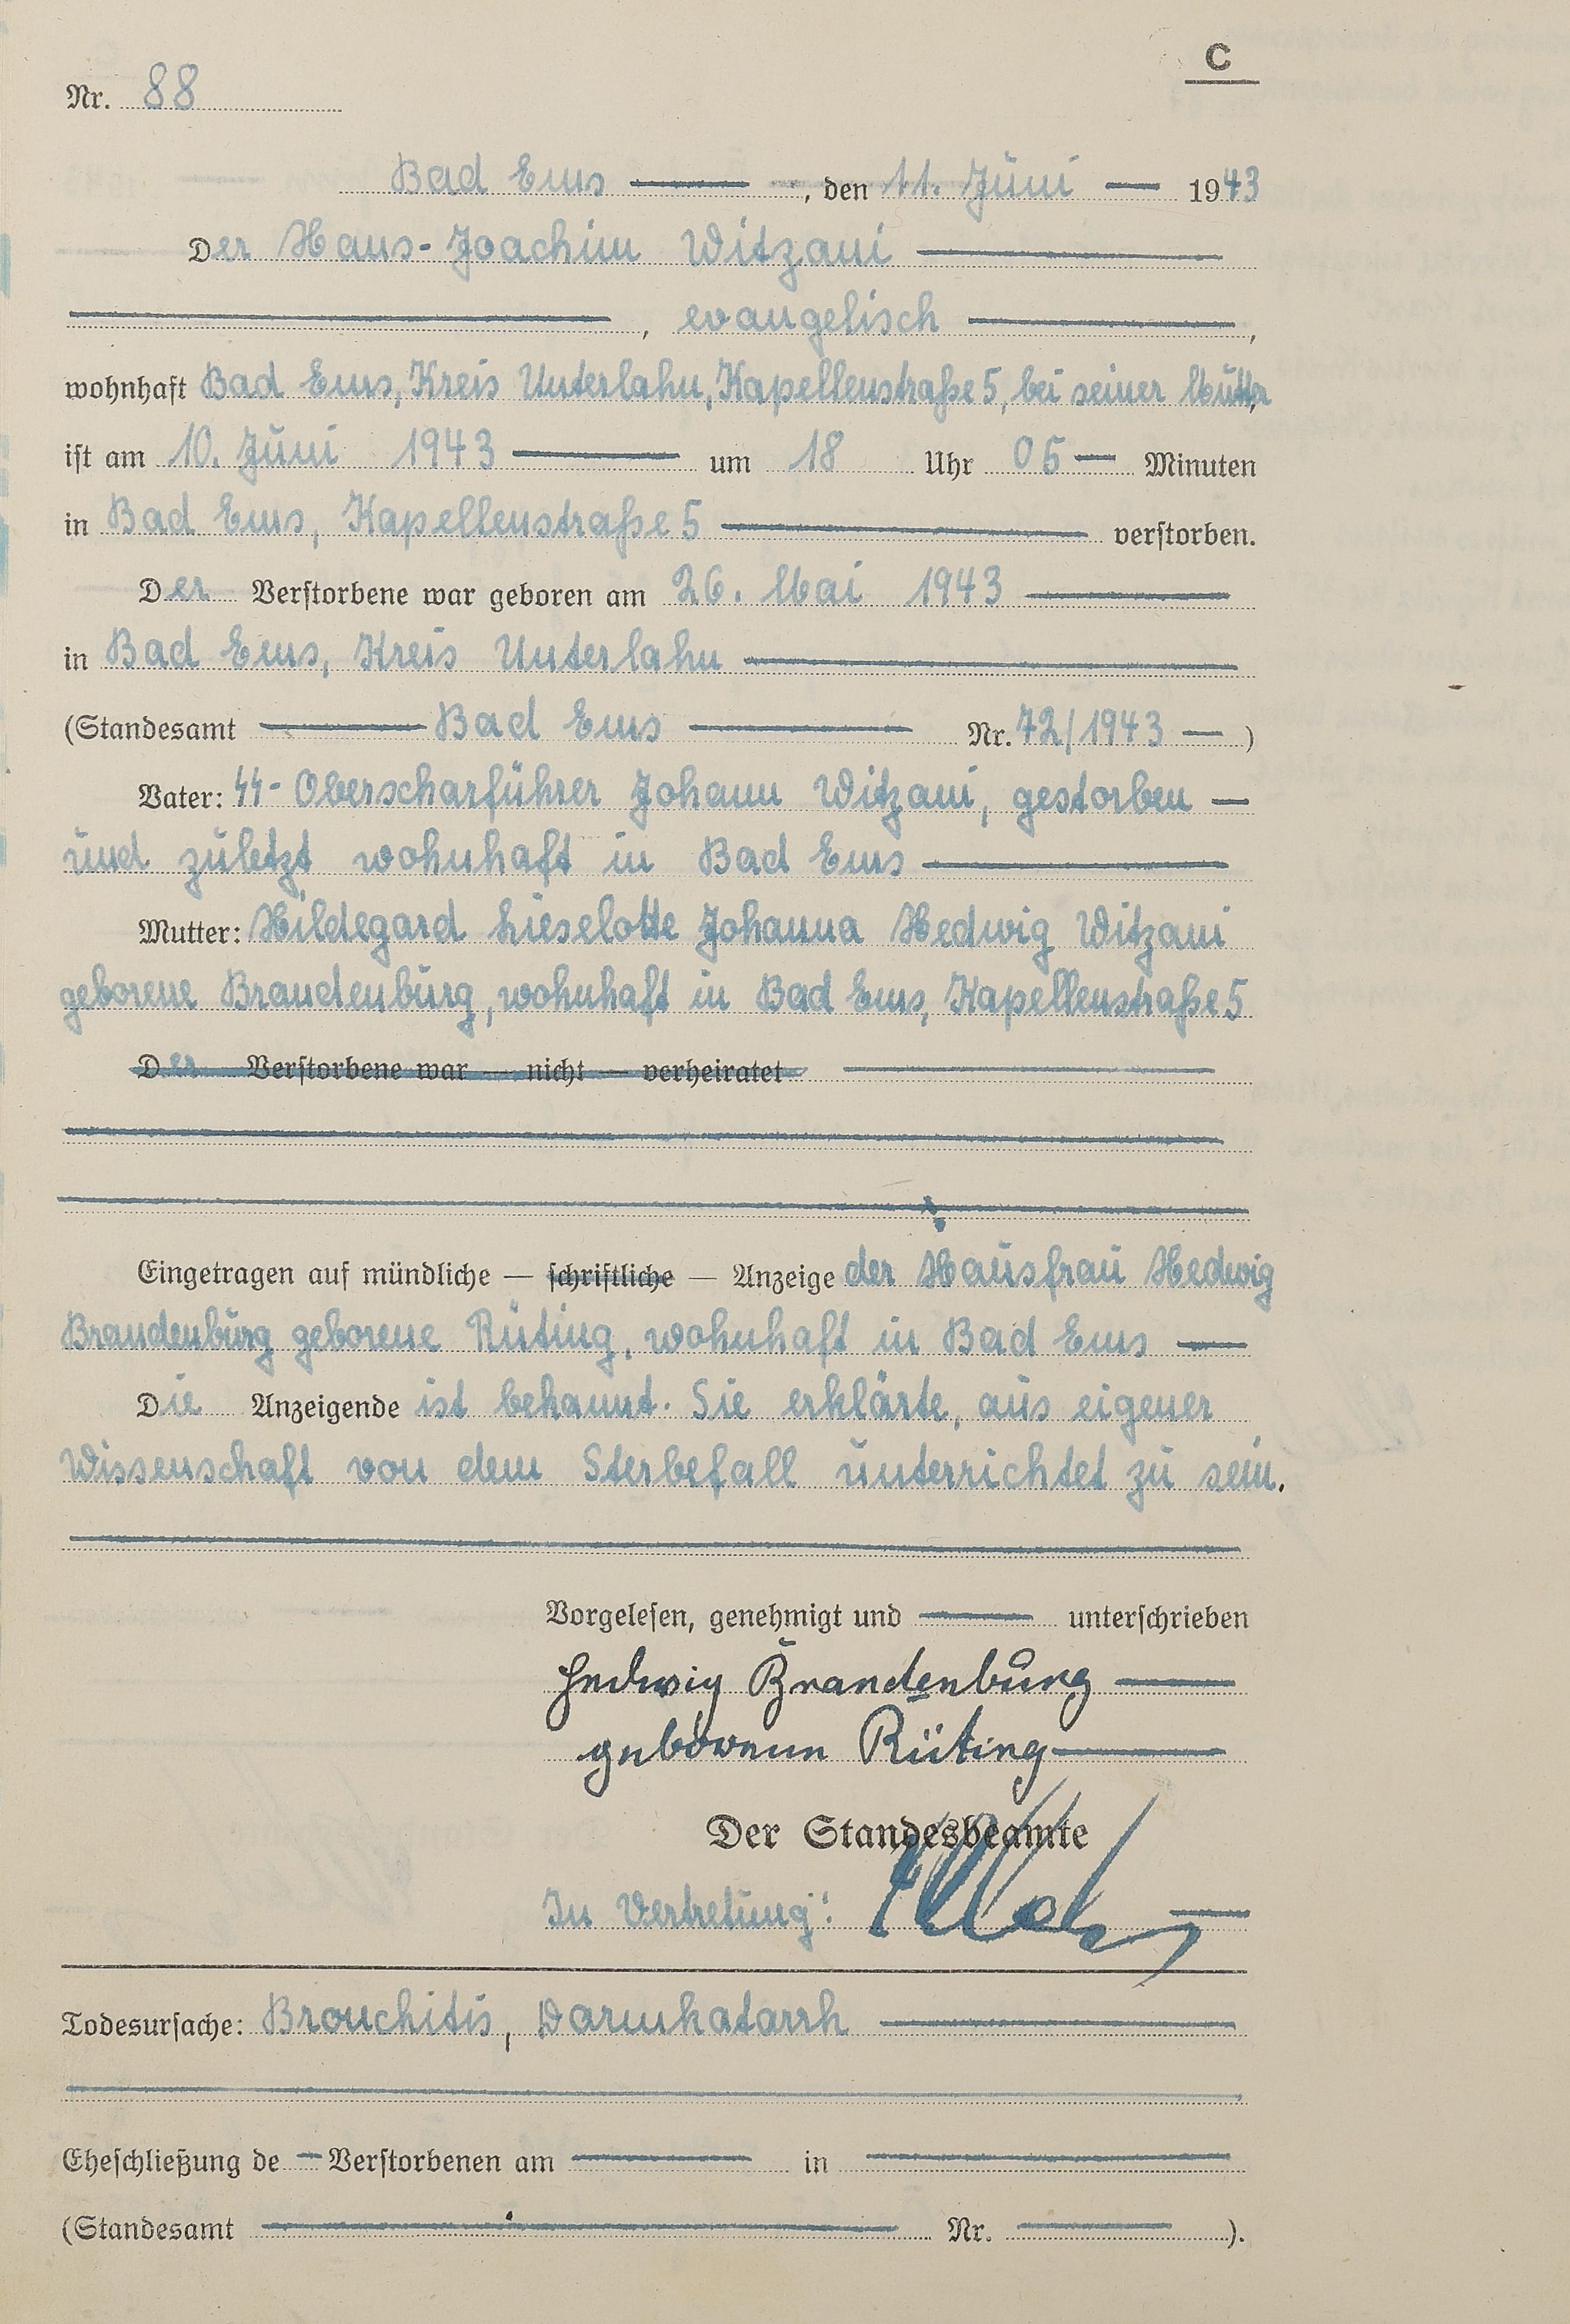 C
Nr. 88
Bad Ems, den 11. Juni 1943
Der Hans-Joachim Witzani
, evangelisch ,
wohnhaft Bad Ems, Kreis Unterlahn, Kapellenstraße 5, bei seiner Mutter,
ist am 10. Juni 1943 um 18 Uhr 05 Minuten
in Bad Ems, Kapellenstraße 5 verstorben.
Der Verstorbene war geboren am 26. Mai 1943
in Bad Ems, Kreis Unterlahn
(Standesamt Bad Ems Nr. 72/1943 — )
Vater: SS-Oberscharführer Johann Witzani, gestorben —
und zuletzt wohnhaft in Bad Ems
Mutter: Hildegard Lieselotte Johanna Hedwig Witzani
geborene Brandenburg, wohnhaft in Bad Ems, Kapellenstraße 5
Der Verstorbene war — nicht — verheiratet
Eingetragen auf mündliche — schriftliche — Anzeige der Hausfrau Hedwig
Brandenburg geborene Rüting, wohnhaft in Bad Ems —
Die Anzeigende ist bekannt. Sie erklärte, aus eigener
Wissenschaft von dem Sterbefall unterrichtet zu sein.
Vorgelesen, genehmigt und — unterschrieben
Hedwig Brandenburg —
geborene Rüting —
Der Standesbeamte
In Vertretung:
Todesursache: Bronchitis, Darmkatarrh
Eheschließung de — Verstorbenen am — in —
(Standesamt — Nr. — ).